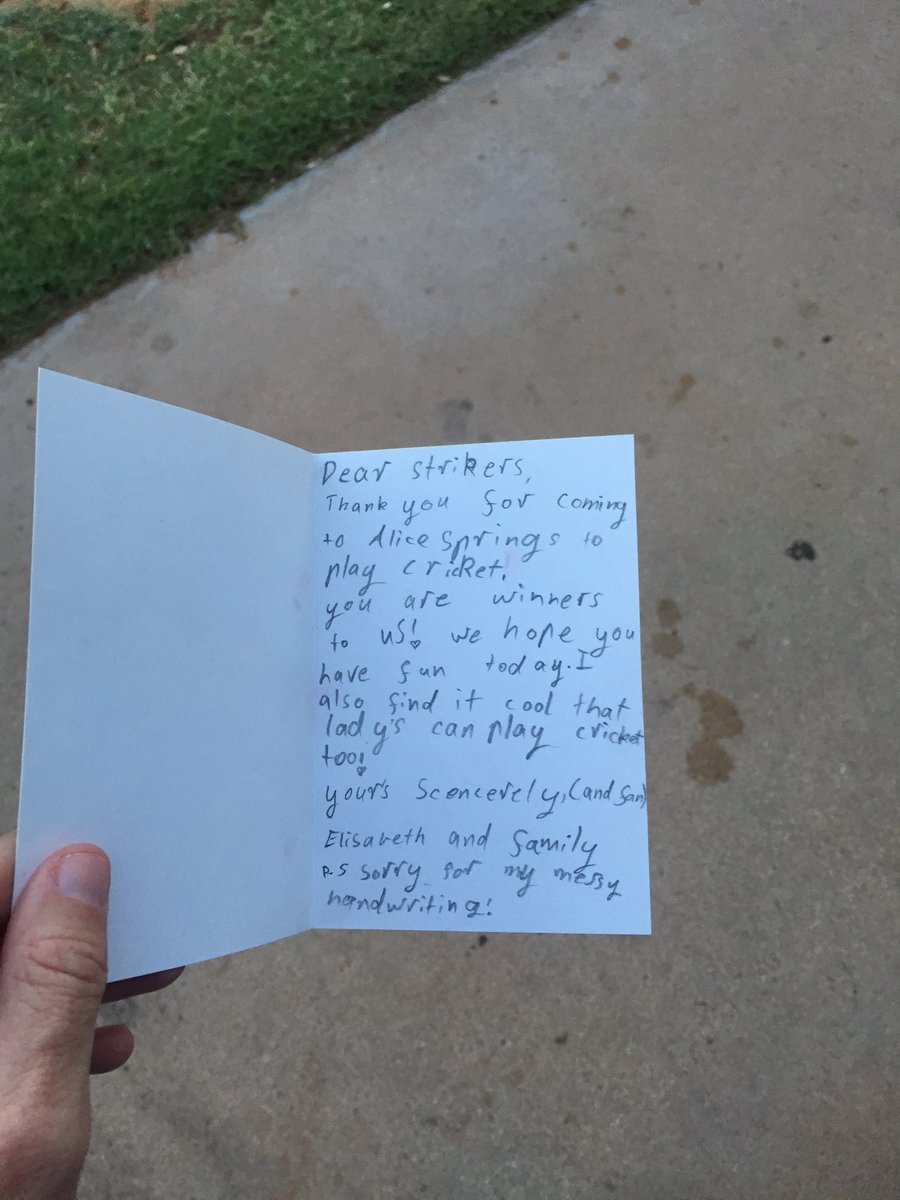 Dear strikers,
Thank you for coming
to Alice Springs to
play cricket.
you are winners
to us! we hope you
have fun today. I
also find it cool that
lady's can play cricket
too!
your's Scencerely, (and fan)
Elisabeth and family
P.S sorry for my messy
handwriting!